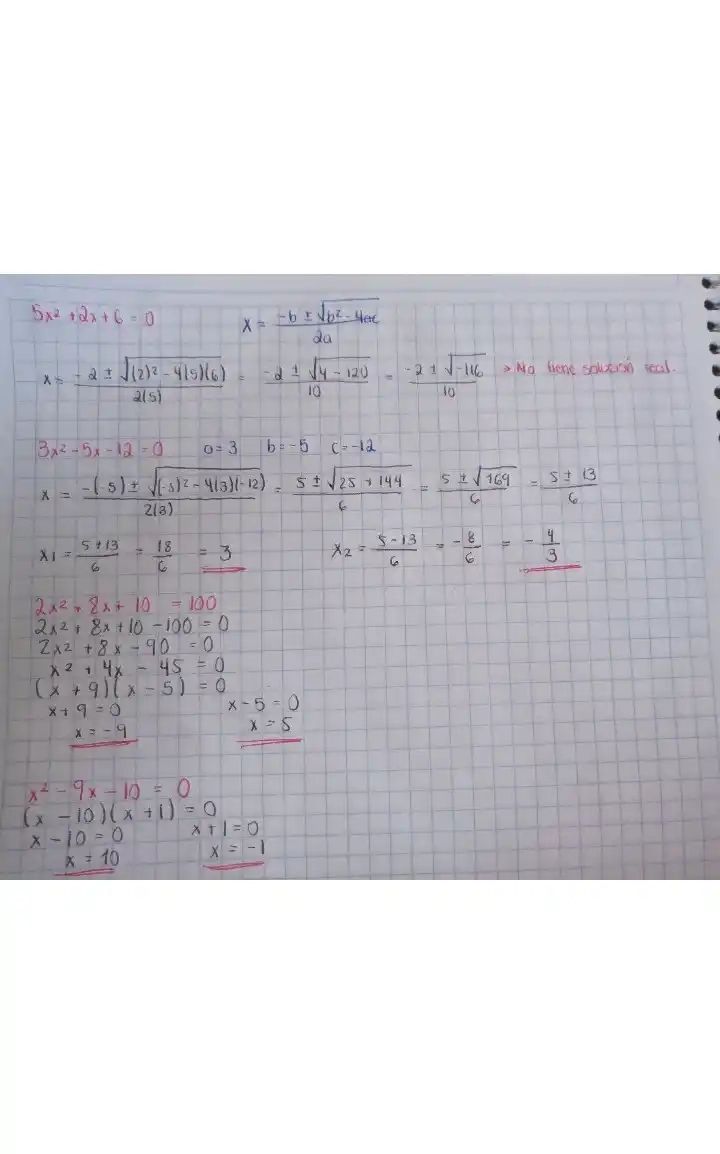 5x² + 2x + 6 = 0    x = (-b ± √(b² - 4ac)) / 2a
x = (-2 ± √((2)² - 4(5)(6))) / 2(5) = (-2 ± √(4 - 120)) / 10 = (-2 ± √(-116)) / 10 → No tiene solución real.
3x² - 5x - 12 = 0    a = 3    b = -5    c = -12
x = (-(-5) ± √((-5)² - 4(3)(-12))) / 2(3) = (5 ± √(25 + 144)) / 6 = (5 ± √169) / 6 = (5 ± 13) / 6
x₁ = (5 + 13) / 6 = 18/6 = 3    x₂ = (5 - 13) / 6 = -8/6 = -4/3
2x² + 8x + 10 = 100
2x² + 8x + 10 - 100 = 0
2x² + 8x - 90 = 0
x² + 4x - 45 = 0
(x + 9)(x - 5) = 0
x + 9 = 0    x - 5 = 0
x = -9    x = 5
x² - 9x - 10 = 0
(x - 10)(x + 1) = 0
x - 10 = 0    x + 1 = 0
x = 10    x = -1